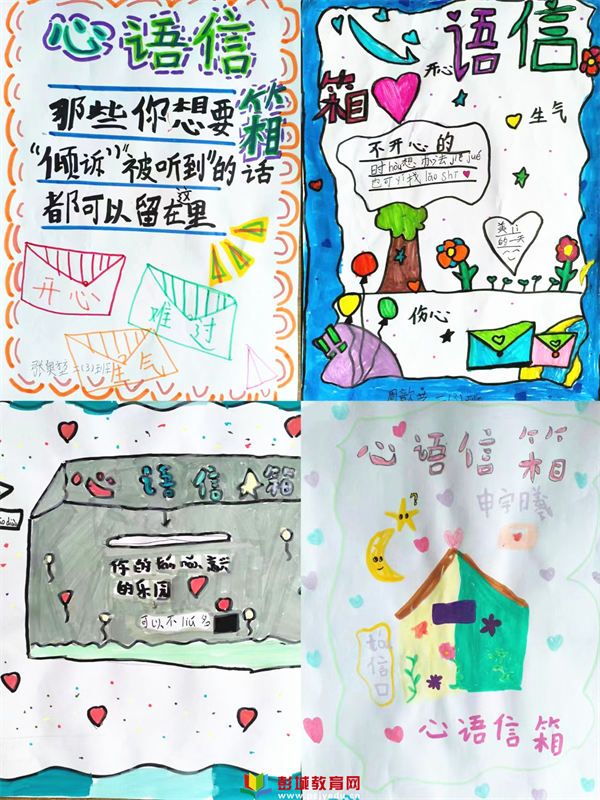 心语信箱
那些你想要
"倾诉""被听到"的话
都可以留在这里
开心
难过
生气
二(3)班
心语信箱
开心
生气
不开心的
时hòu想办法jiějué
也可以找lǎo shī
美好
的一天
伤心
二(3)班
心语信箱
的乐园
可以不liú名
心语信箱
申宇曦
投信口
心语信箱
彭城教育网
www.pcjyedu.cn